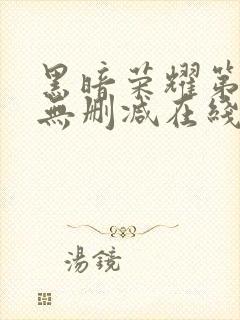 黑暗荣耀第
無删减在綫
湯鏡